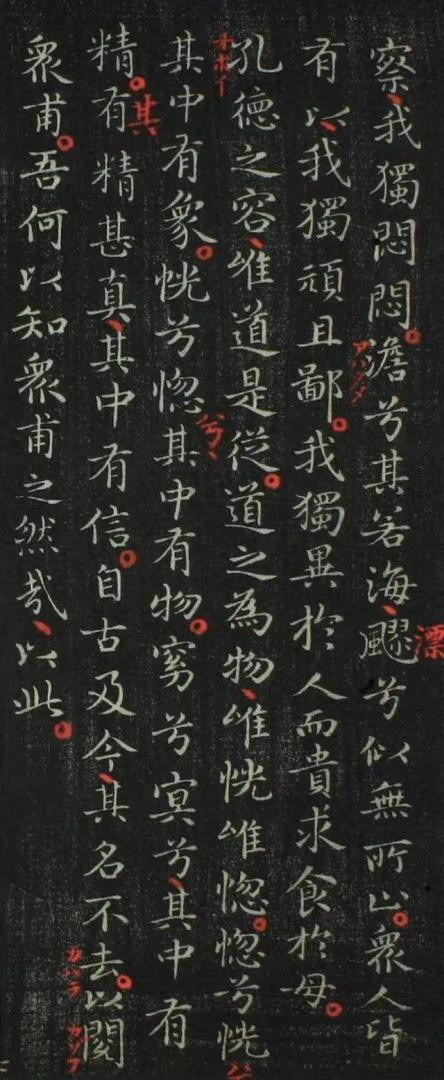 察我獨悶悶澹兮其若海飂兮似無所止衆人皆
有以我獨頑且鄙我獨異於人而貴求食於母
孔德之容唯道是從道之為物唯恍唯惚惚兮恍
其中有象恍兮惚其中有物窈兮冥兮其中有
精有精甚真其中有信自古及今其名不去以閱
衆甫吾何以知衆甫之然哉以此
漂
兮
其